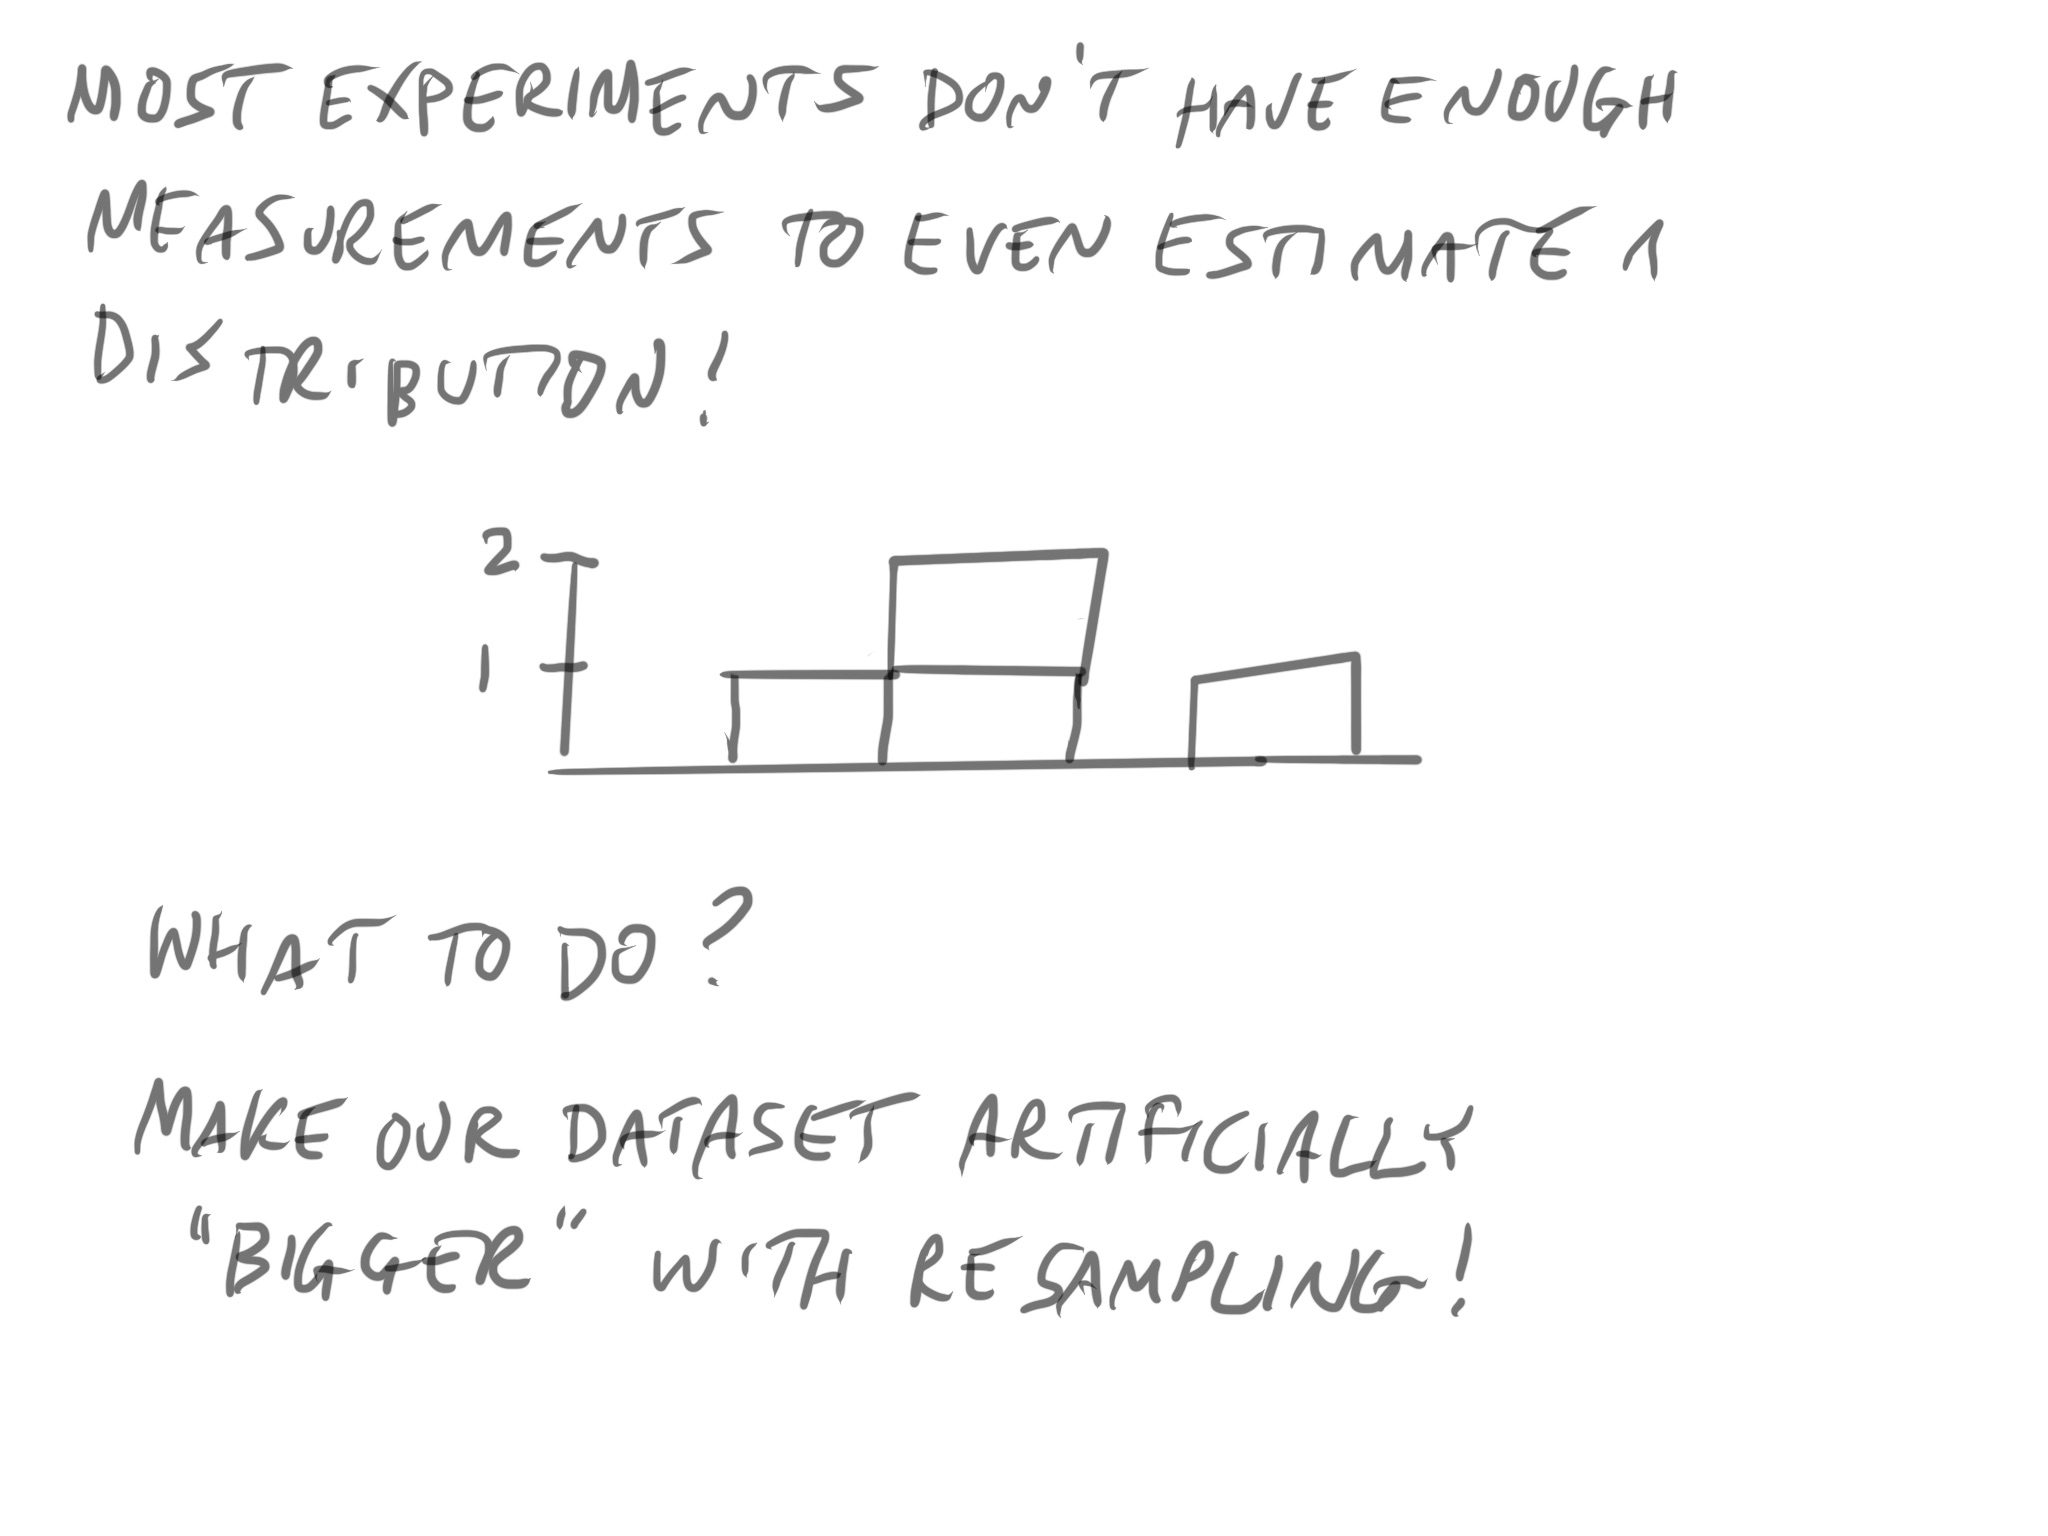 MOST EXPERIMENTS DON'T HAVE ENOUGH
MEASUREMENTS TO EVEN ESTIMATE A
DISTRIBUTION!
2
1
WHAT TO DO?
MAKE OUR DATASET ARTIFICIALLY
"BIGGER" WITH RESAMPLING!